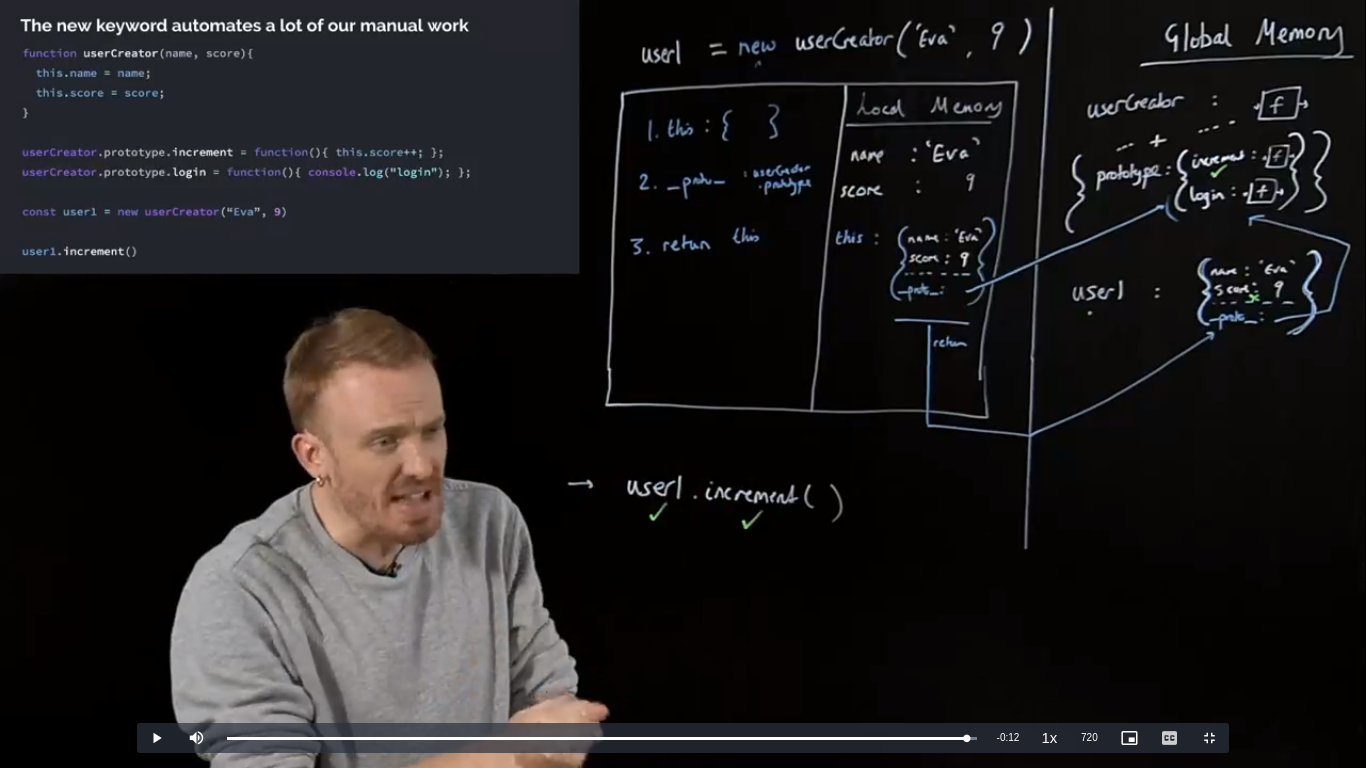 The new keyword automates a lot of our manual work
function userCreator(name, score){
this.name = name;
this.score = score;
}
userCreator.prototype.increment = function(){ this.score++; };
userCreator.prototype.login = function(){ console.log("login"); };
const user1 = new userCreator(“Eva”, 9)
user1.increment()
user1 = new userCreator('Eva', 9)
1. this : { }
2. __proto__ : userCreator
.prototype
3. return this
Local Memory
name : 'Eva'
score : 9
this : { name : 'Eva'
score : 9
__proto__ : }
return
Global Memory
userCreator : f
+
{ prototype : { increment : f
login : f } }
user1 : { name : 'Eva'
score : 9
__proto__ : }
→ user1.increment( )
-0:12
1x
720
CC